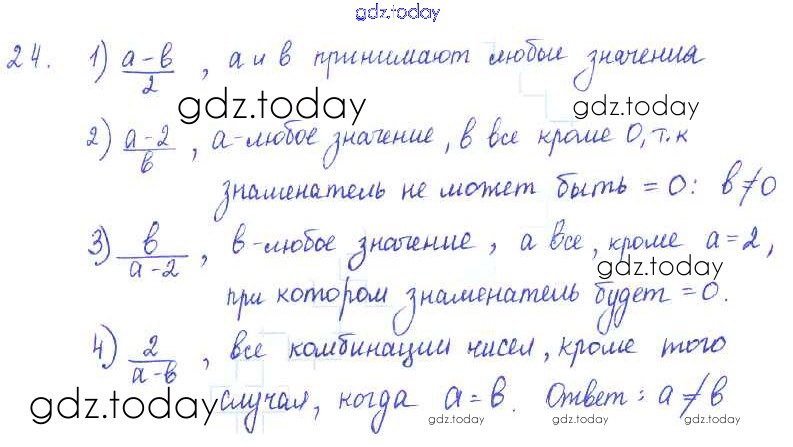 gdz.today
24. 1) (a-b)/2 , a и b принимают любые значения
gdz.today gdz.today
2) (a-2)/b , a-любое значение, b все кроме 0, т.к
знаменатель не может быть = 0: b≠0
3) b/(a-2) , b-любое значение, a все, кроме a=2,
gdz.today
при котором знаменатель будет = 0.
4) 2/(a-b) , все комбинации чисел, кроме того
случая, когда a = b. Ответ: a ≠ b
gdz.today gdz.today gdz.today gdz.today